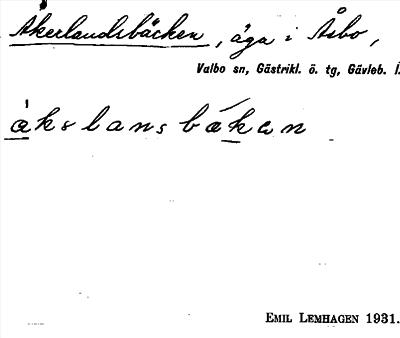 Åkerlandsbäcken, äga i Åsbo,
Valbo sn, Gästrikl. ö. tg, Gävleb. l.
åkslansbäkan
EMIL LEMHAGEN 1931.